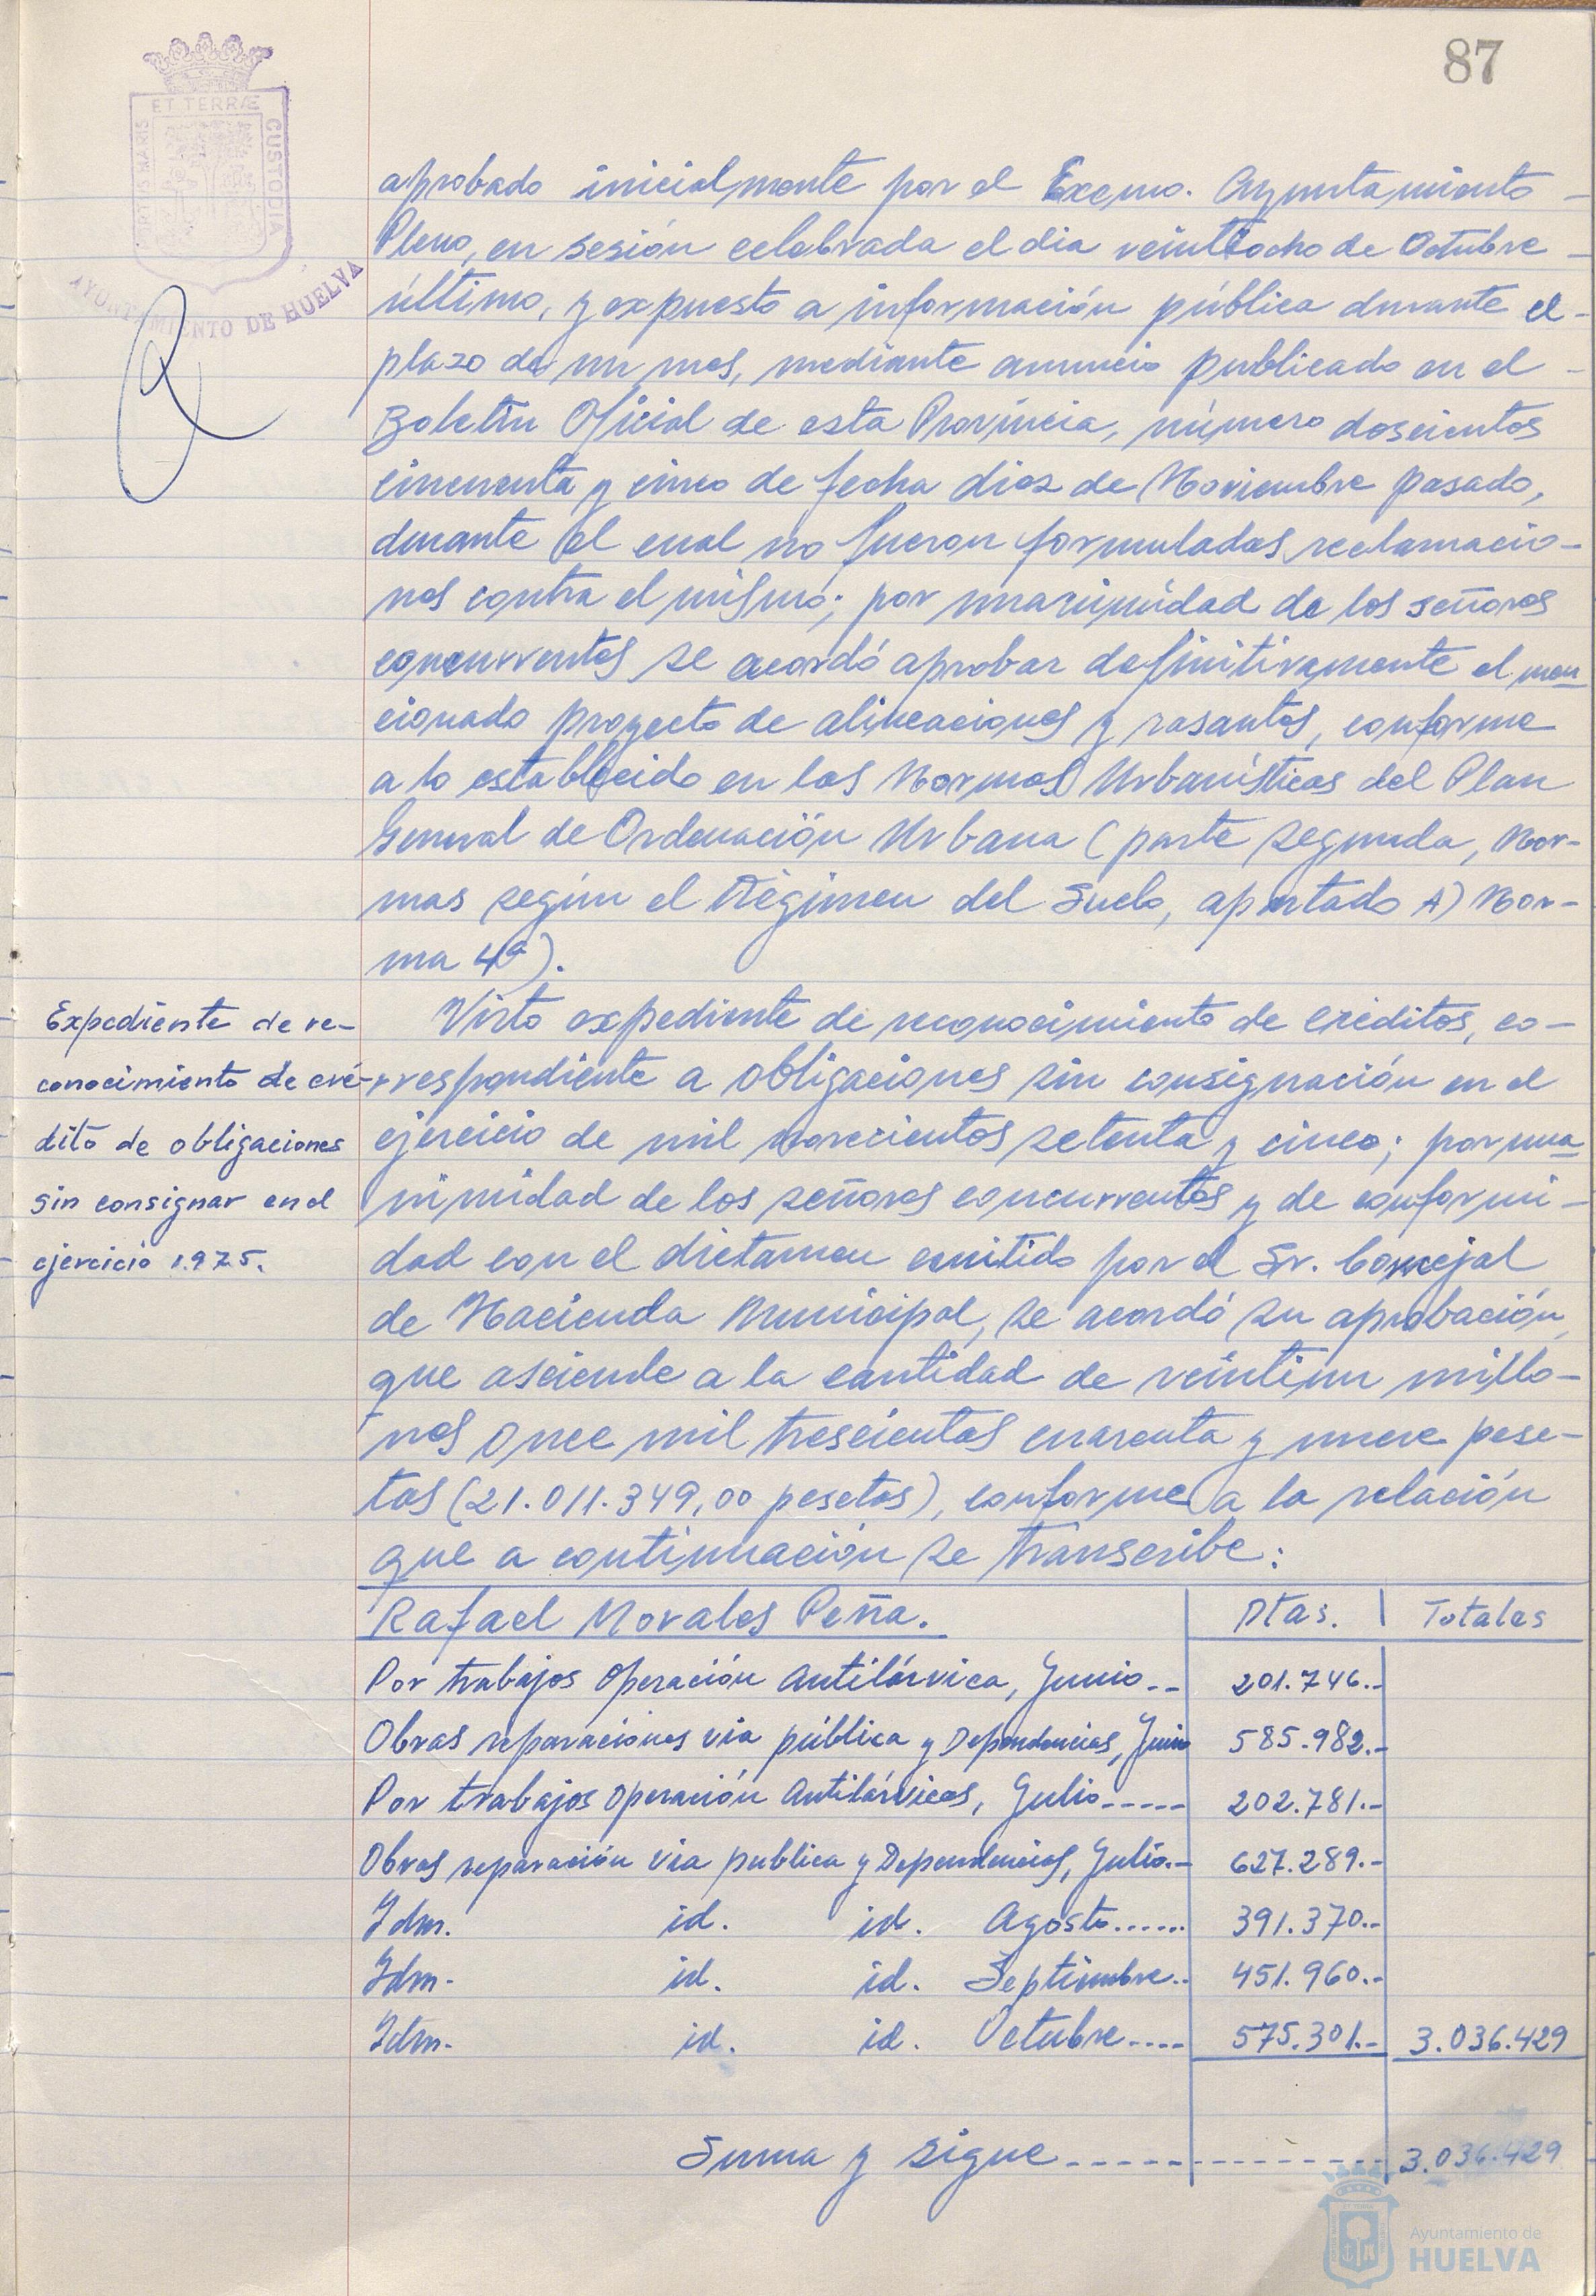 87
ET TERRÆ
PORTUS MARIS
CUSTODIA
AYUNTAMIENTO DE HUELVA
aprobado inicialmente por el Excmo. Ayuntamiento
Pleno, en sesión celebrada el dia veintiocho de Octubre
último, y expuesto a información pública durante el
plazo de un mes, mediante anuncio publicado en el
Boletín Oficial de esta Provincia, número doscientos
cincuenta y cinco de fecha diez de Noviembre pasado,
durante el cual no fueron formuladas reclamacio-
nes contra el mismo; por unanimidad de los señores
concurrentes se acordó aprobar definitivamente el men
cionado proyecto de alineaciones y rasantes, conforme
a lo establecido en las Normas Urbanísticas del Plan
General de Ordenación Urbana (parte segunda, Nor-
mas según el Régimen del Suelo, apartado A) Nor-
ma 4ª).
Expediente de re-
conocimiento de cré-
dito de obligaciones
sin consignar en el
ejercicio 1.975.
Visto expediente de reconocimiento de créditos, co-
rrespondiente a obligaciones sin consignación en el
ejercicio de mil novecientos setenta y cinco; por una
nimidad de los señores concurrentes y de conformi-
dad con el dictamen emitido por el Sr. Concejal
de Hacienda Municipal, se acordó su aprobación,
que asciende a la cantidad de veintiun millo-
nes once mil trescientas cuarenta y nueve pese-
tas (21.011.349,00 pesetas), conforme a la relación
que a continuación se transcribe:
Rafael Morales Peña. Ptas. Totales
Por trabajos Operación Antilárvica, Junio-- 201.746.-
Obras reparaciones via pública y Dependencias, Junio 585.982.-
Por trabajos operación Antilárvicas, Julio----- 202.781.-
Obras reparación via publica y Dependencias, Julio.- 627.289.-
Idm. id. id. Agosto...... 391.370.-
Idm. id. id. Septiembre.. 451.960.-
Idm. id. id. Octubre---- 575.301.- 3.036.429
Suma y sigue------------- 3.036.429
Ayuntamiento de
HUELVA